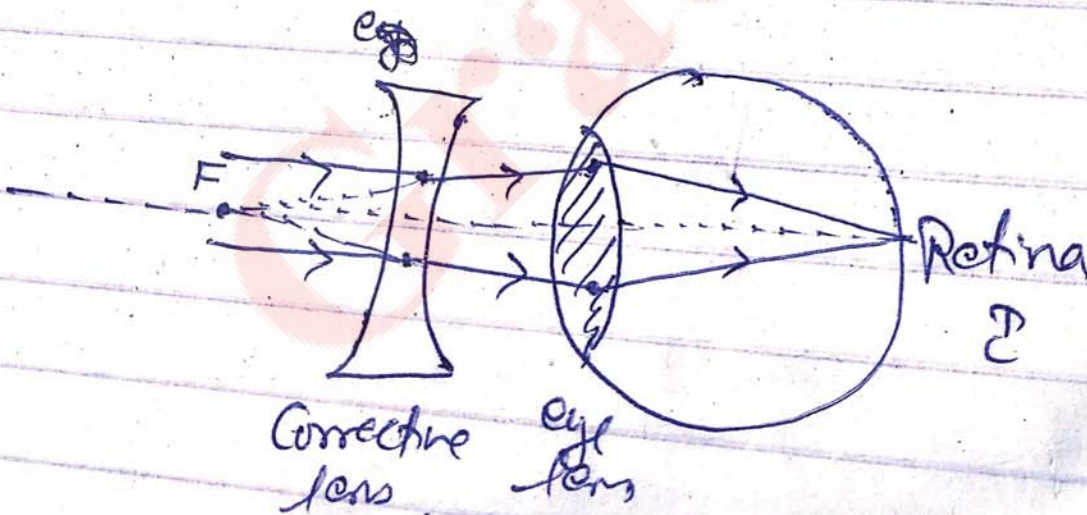 F
Retina
I
Corrective
lens
eye
lens